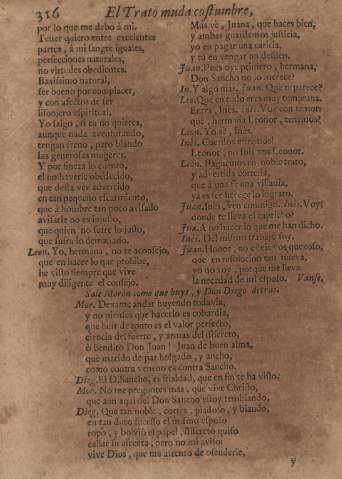 316 El Trato muda costumbre,
por lo que me debo à mi.
Tener quiero entre excelentes
partes, à mi sangre iguales,
perfecciones naturales,
no virtudes obedientes.
Baxissimo natural,
ser bueno por complacer,
y con afectos de ser
lisongero espiritual.
Yo salgo, si tu no quieres,
aunque nada aventurando,
tengan freno, pero blando
las generosas mugeres.
Y por fineza lo cuento,
el no haverle obedecido,
que desta vez advertido
en tan pequeño
que à hombre tan poco avisado
avisarle no es insulto,
que quien no sufre lo justo,
que sufra lo demasiado.
Leon. Yo, hermana, no te aconsejo,
que en hacer lo que prohibe,
he visto siempre que vive
muy diligente el consejo.
Mas vè, Juana, que haces bien,
y ambas guardemos justicia,
yo en pagar una caricia,
y tu en vengar un desden.
Juan. Pues oye primero, hermana,
Don Sancho no lo merece?
In. Y algo mas. Juan. Què te parece?
Leo. Que en todo eres muy temprana.
Entra, Inès. Inès. Voy con temor
què, hermosa Leonor, tenemos?
Leon. Yo sè, Inès.
Inès. Cuerdos extremos!
Leonor, no sois vos Leonor.
Leon. Paguemos en noble trato,
y advertida cortesìa,
que à una te una villanìa,
ya es ser herege lo ingrato.
Juan. Inès, ven conmigo. Inès. Voy:
donde te lleva el capricho?
Jua. A no hacer lo que me han dicho.
Inès. Del mismo trabajo soy.
Juan. Honor, no estèis vos quexoso,
que en resolucion tan nueva,
yo no voy, porque me lleva
la necedad de mi esposo. Vanse.
Sale Moròn como que huye, y Don Diego detras.
Mor. Dexame andar huyendo todavia,
y no pienses que hacerlo es cobardìa,
que huir de tonto es el valor perfecto,
ciencia del fuerte, y armas del discreto,
ò bendito Don Juan! Juan de buen alma,
que marido de paz holgado, y ancho,
como contra veneno es contra Sancho.
Dieg. El D. Sancho, es frialdad, que en fin te ha visto.
Mor. No me preguntes mas, que vive Christo,
que aun aqui del Don Sancho estoy temblando.
Dieg. Que tan noble, cortès, piadoso, y blando,
en tan duro sucesso el mismo esposo
topò, y bolviò el papel, discreto quiso
callar su afrenta, pero no mi aviso:
vive Dios, que me afrento de ofenderle,
y